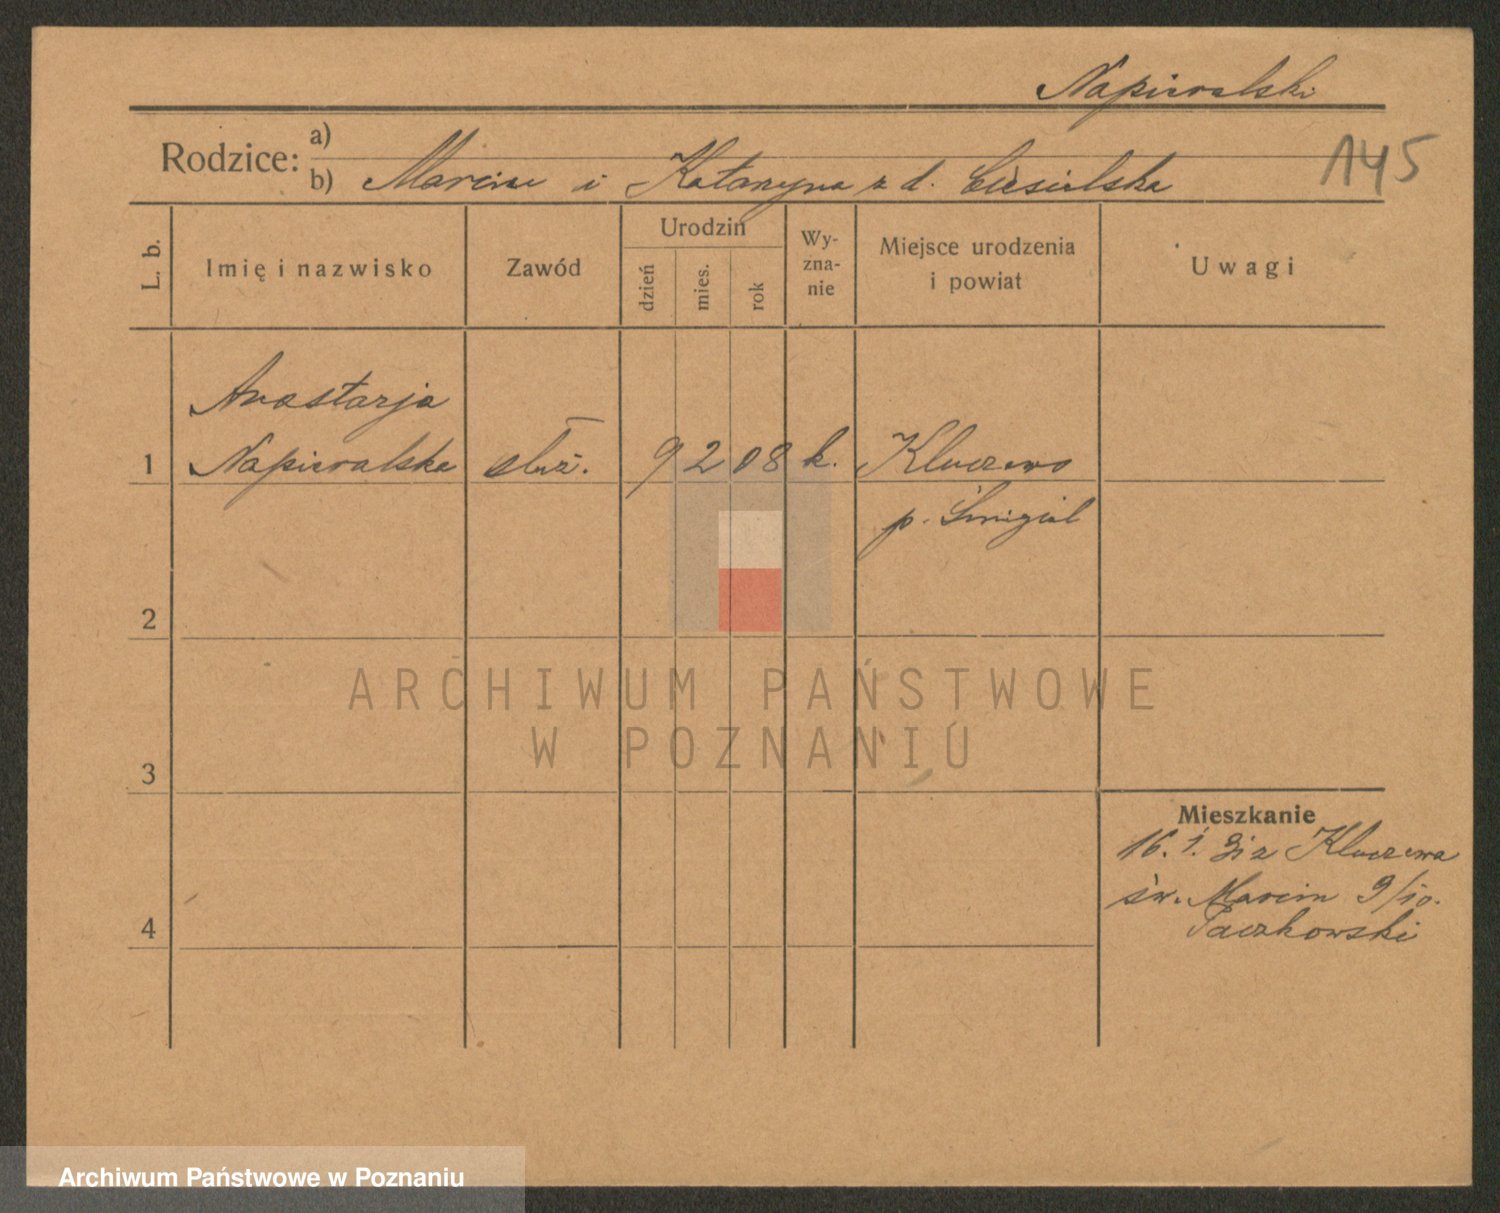 Napieralski
Rodzice:
a)
b) Marcin i Katarzyna z d. Ciesielska
145
L. b.
Imię i nazwisko
Zawód
Urodzin
dzień
mies.
rok
Wy-
zna-
nie
Miejsce urodzenia
i powiat
Uwagi
Anastazja
1 Napieralska służ. 9 2 08 k. Kluczewo
p. Śmigiel
2
ARCHIWUM PAŃSTWOWE
W POZNANIU
3
Mieszkanie
16. 1. 31 z Kluczewa
św. Marcin 9/10.
Taczkowski
4
Archiwum Państwowe w Poznaniu